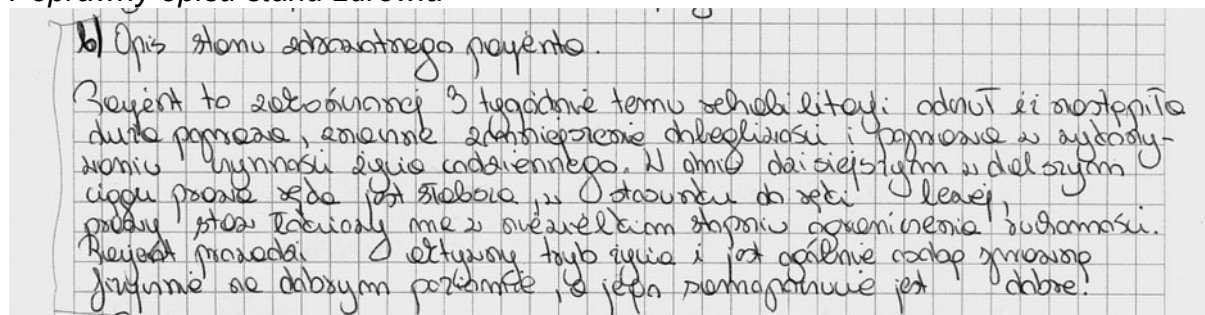 Poprawny opisu stanu zdrowia
b) Opis stanu zdrowotnego pacjenta.
Pacjent to zakończonej 3 tygodnie temu rehabilitacji odnuł iż nastąpiła
duża poprawa, zmienne zmniejszenie dolegliwości i poprawa w wykony-
waniu czynności życia codziennego. W dniu dzisiejszym w dalszym
ciągu prawa ręka jest słabsza, w stosunku do ręki lewej,
prawy staw łokciowy ma w niewielkim stopniu ograniczenia ruchomości.
Pacjent prowadzi aktywny tryb życia i jest ogólnie
fizycznie na dobrym poziomie, a jego samopoczucie jest dobre.